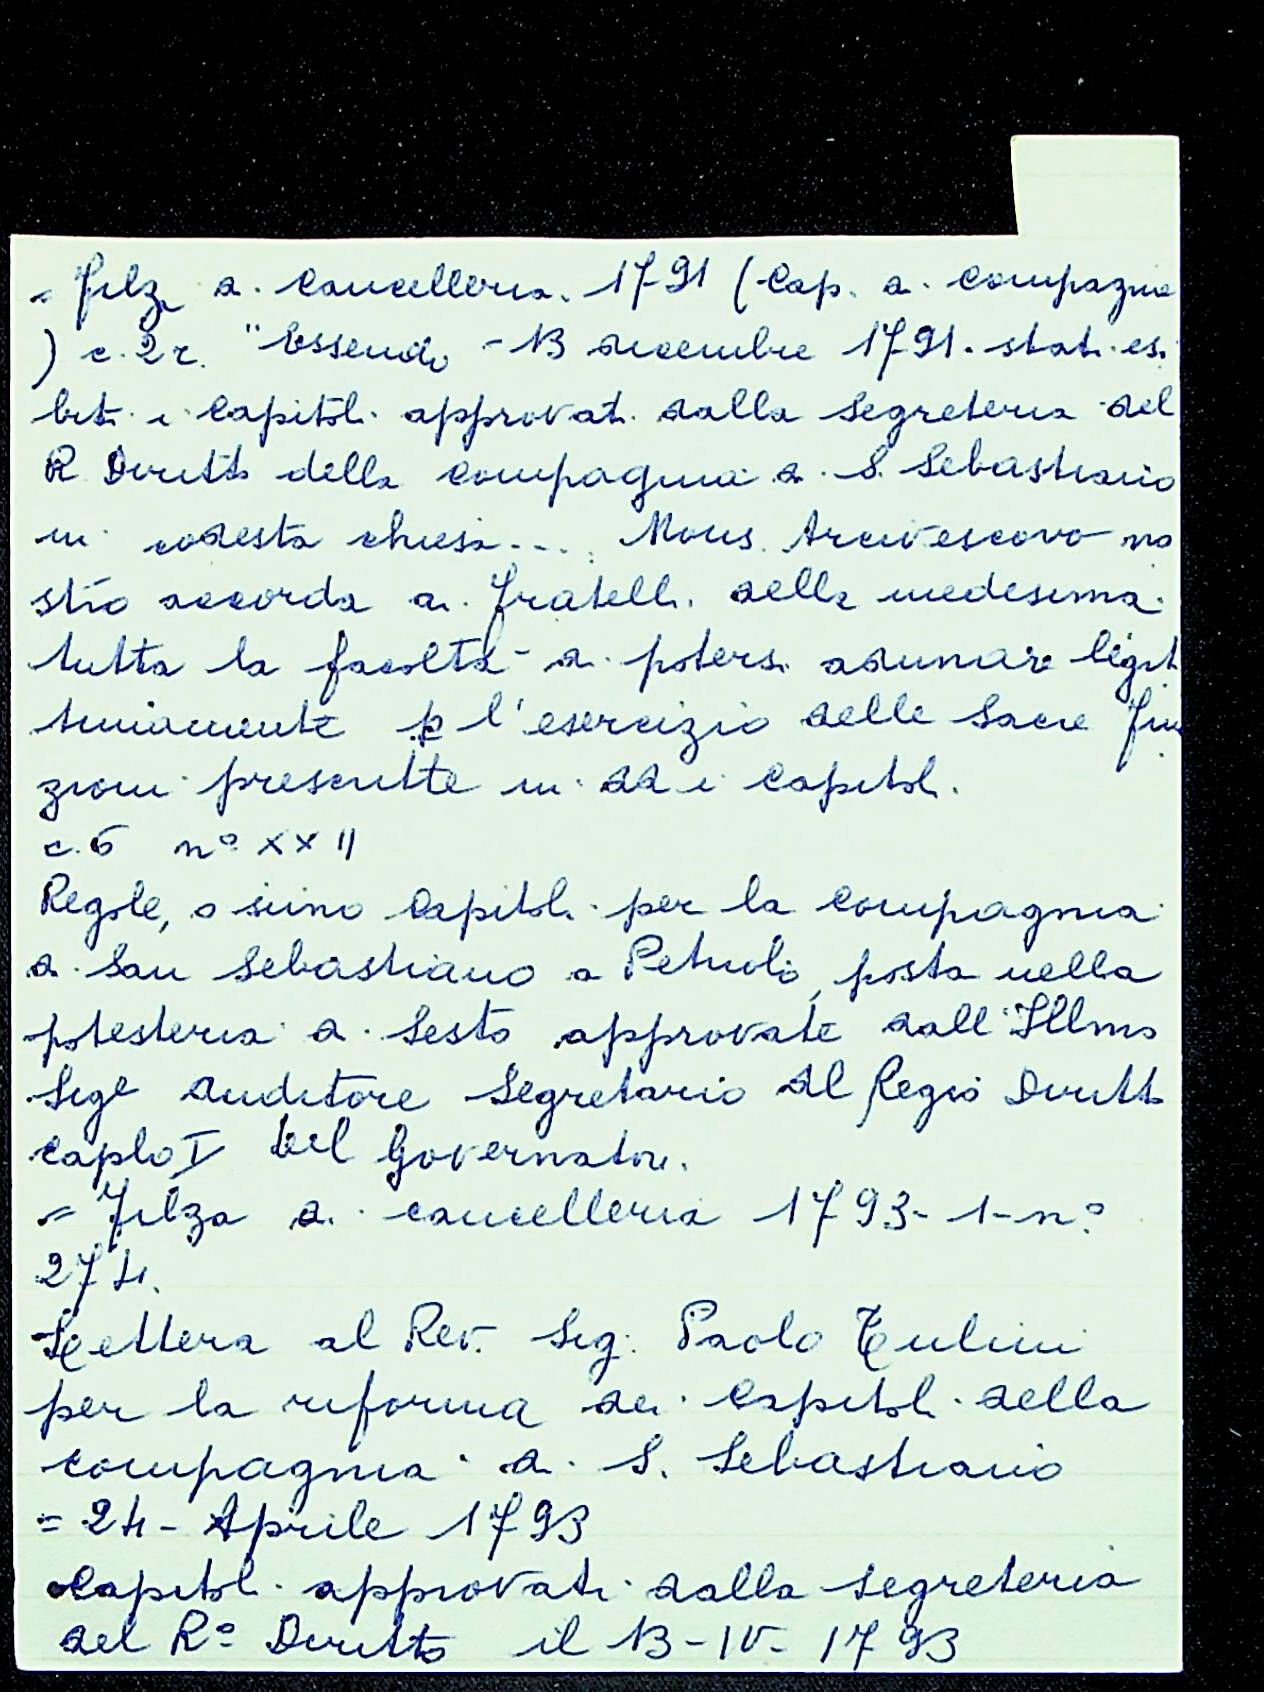 = Filza di cancelleria 1791 (Cap. di compagnia
) c. 2r. "Essendo - 13 dicembre 1791. stati esi
biti i capitoli approvati dalla segreteria del
R Diritto della compagnia di S. Sebastiano
in codesta chiesa.... Mons. Arcivescovo no
stro accorda ai fratelli della medesima
tutta la facoltà di potersi adunare legit
timamente p l'esercizio delle sacre fun
zioni prescritte in dd i capitoli.
c. 6 n° XXII
Regole, o siino capitoli per la compagnia
di San Sebastiano a Petriolo, posta nella
potesteria di Sesto approvate dall'Illmo
Sige Auditore Segretario del Regio Diritto
caplo I Del Governatore.
= Filza di cancelleria 1793-1-n°
274.
Lettera al Rev. Sig. Paolo Tulini
per la riforma dei capitoli della
compagnia di S. Sebastiano
= 24 - Aprile 1793
Capitoli approvati dalla segreteria
del R° Diritto il 13-IV-1793